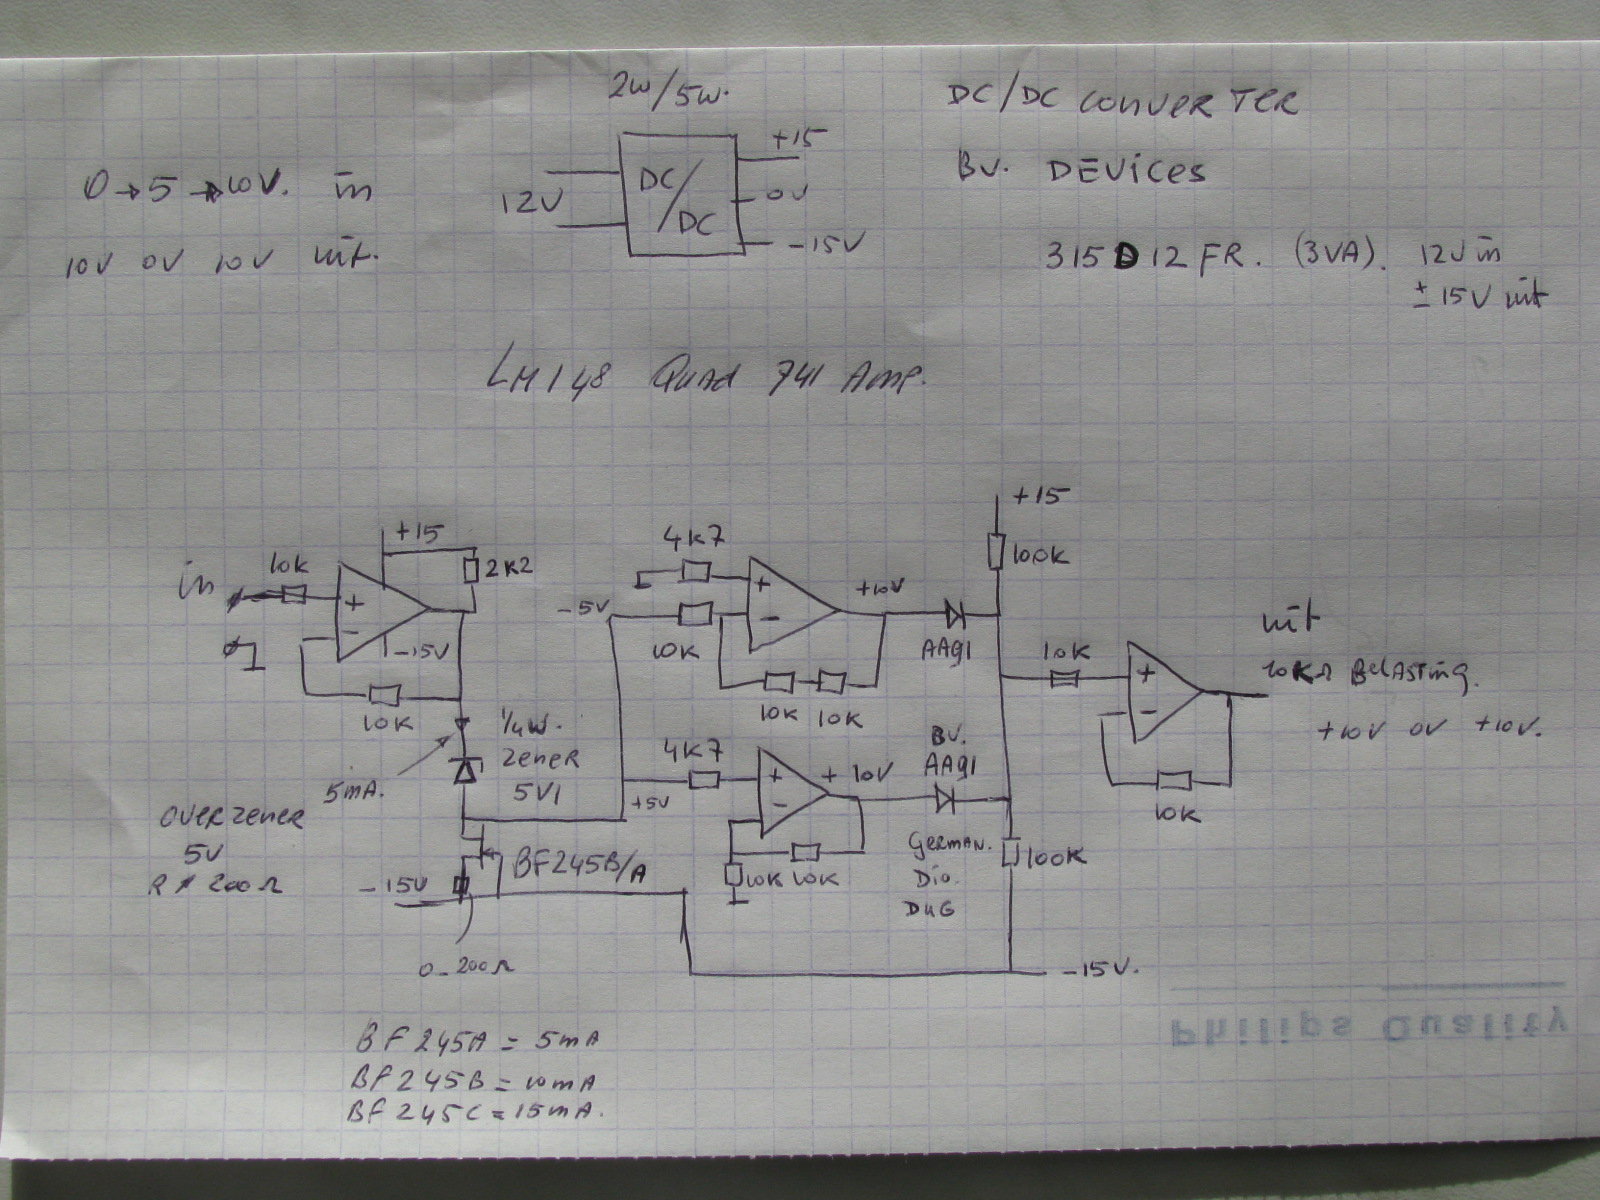 2W/5W.
DC/DC CONVERTER
+15
0→5→10V. in
12V
DC/DC
0V
BV. DEVICES
10V 0V 10V uit.
-15V
315D12FR. (3VA). 12V in
± 15V uit
LM148 Quad 741 Amp.
+15
+15
4K7
100K
in
10K
2K2
+
-
-15V
10K
-5V
10K
+
-
+10V
AA91
10K 10K
uit
10K
+
-
10KΩ BELASTING.
+10V 0V +10V.
10K
1/4W.
ZENER
5V1
5mA.
4K7
+5V
+
-
+ 10V
BV.
AA91
OVER ZENER
5V
200Ω
BF245B/A
-15V
10K 10K
GERMAN.
Dio.
DUG
100K
0-200Ω
-15V.
Philips Quality
BF245A = 5mA
BF245B = 10mA
BF245C = 15mA.